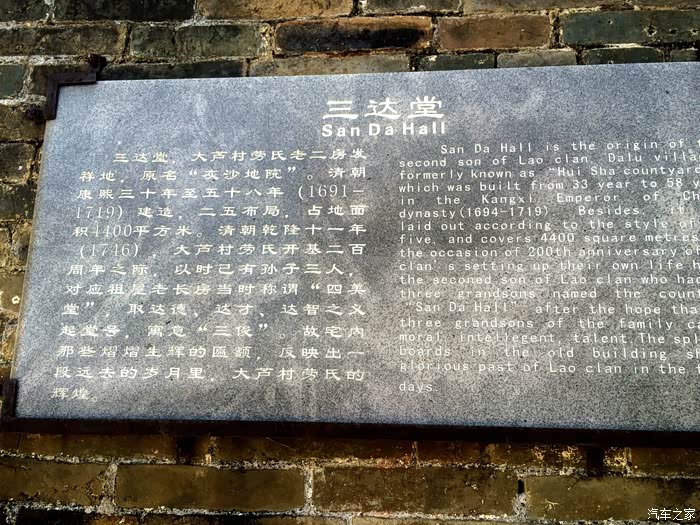 三达堂
San Da Hall
三达堂，大芦村劳氏老二房发
祥地，原名“灰沙地院”。清朝
康熙三十年至五十八年（1691-
1719）建造，二五布局，占地面
积4400平方米。清朝乾隆十一年
（1746），大芦村劳氏开基二百
周年之际，以时已有孙子三人，
对应祖屋老长房当时称谓“四美
堂”，取达德、达才、达智之义
起堂号，寓意“三俊”。故宅内
那些熠熠生辉的匾额，反映出一
段远去的岁月里，大芦村劳氏的
辉煌。
San Da Hall is the origin of
second son of Lao clan, Dalu
formerly known as "Hui Sha"
which was built from 33 year to 58
in the Kangxi Emperor of
dynasty(1694-1719). Besides, it
laid out according to the style of
five, and covers 4400 square metres
the occasion of 200th anniversary of
clan's setting up their own life
the seconed son of Lao clan who had
three grandsons named the
"San Da Hall" after the hope
three grandsons of the family
moral, intellegent, talent.The
boards in the old building
glorious past of Lao clan in the
days
汽车之家